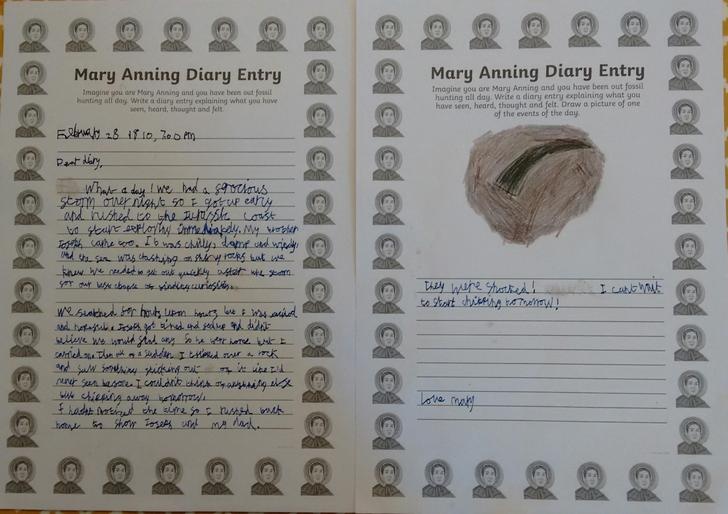 Mary Anning Diary Entry
Imagine you are Mary Anning and you have been out fossil
hunting all day. Write a diary entry explaining what you have
seen, heard, thought and felt.
February 28 1810, 7.00 PM
Dear diary,
What a day! We had a
storm over night so I got up early
and rushed to the Jurassic coast
to start exploring. My brother
Joseph came too. It was chilly, damp and windy
and the sea was crashing on rocks but we
knew we needed to get out quickly after the storm
for our best chance of finding curiosities.
We searched for hours upon hours but I was
and hopeful. Joseph got tired and and didnt
believe we would find any. So he went home but I
carried on. Then all of a sudden I tripped over a rock
and saw something sticking out of it like I'd
never seen before. I couldnt think of anything else
but chipping away tomorrow.
I hadnt noticed the time so I rushed back
home to show Joseph and my dad.
Mary Anning Diary Entry
Imagine you are Mary Anning and you have been out fossil
hunting all day. Write a diary entry explaining what you
have seen, heard, thought and felt. Draw a picture of one
of the events of the day.
They were shocked! I cant wait
to start chipping tomorrow!
Love Mary